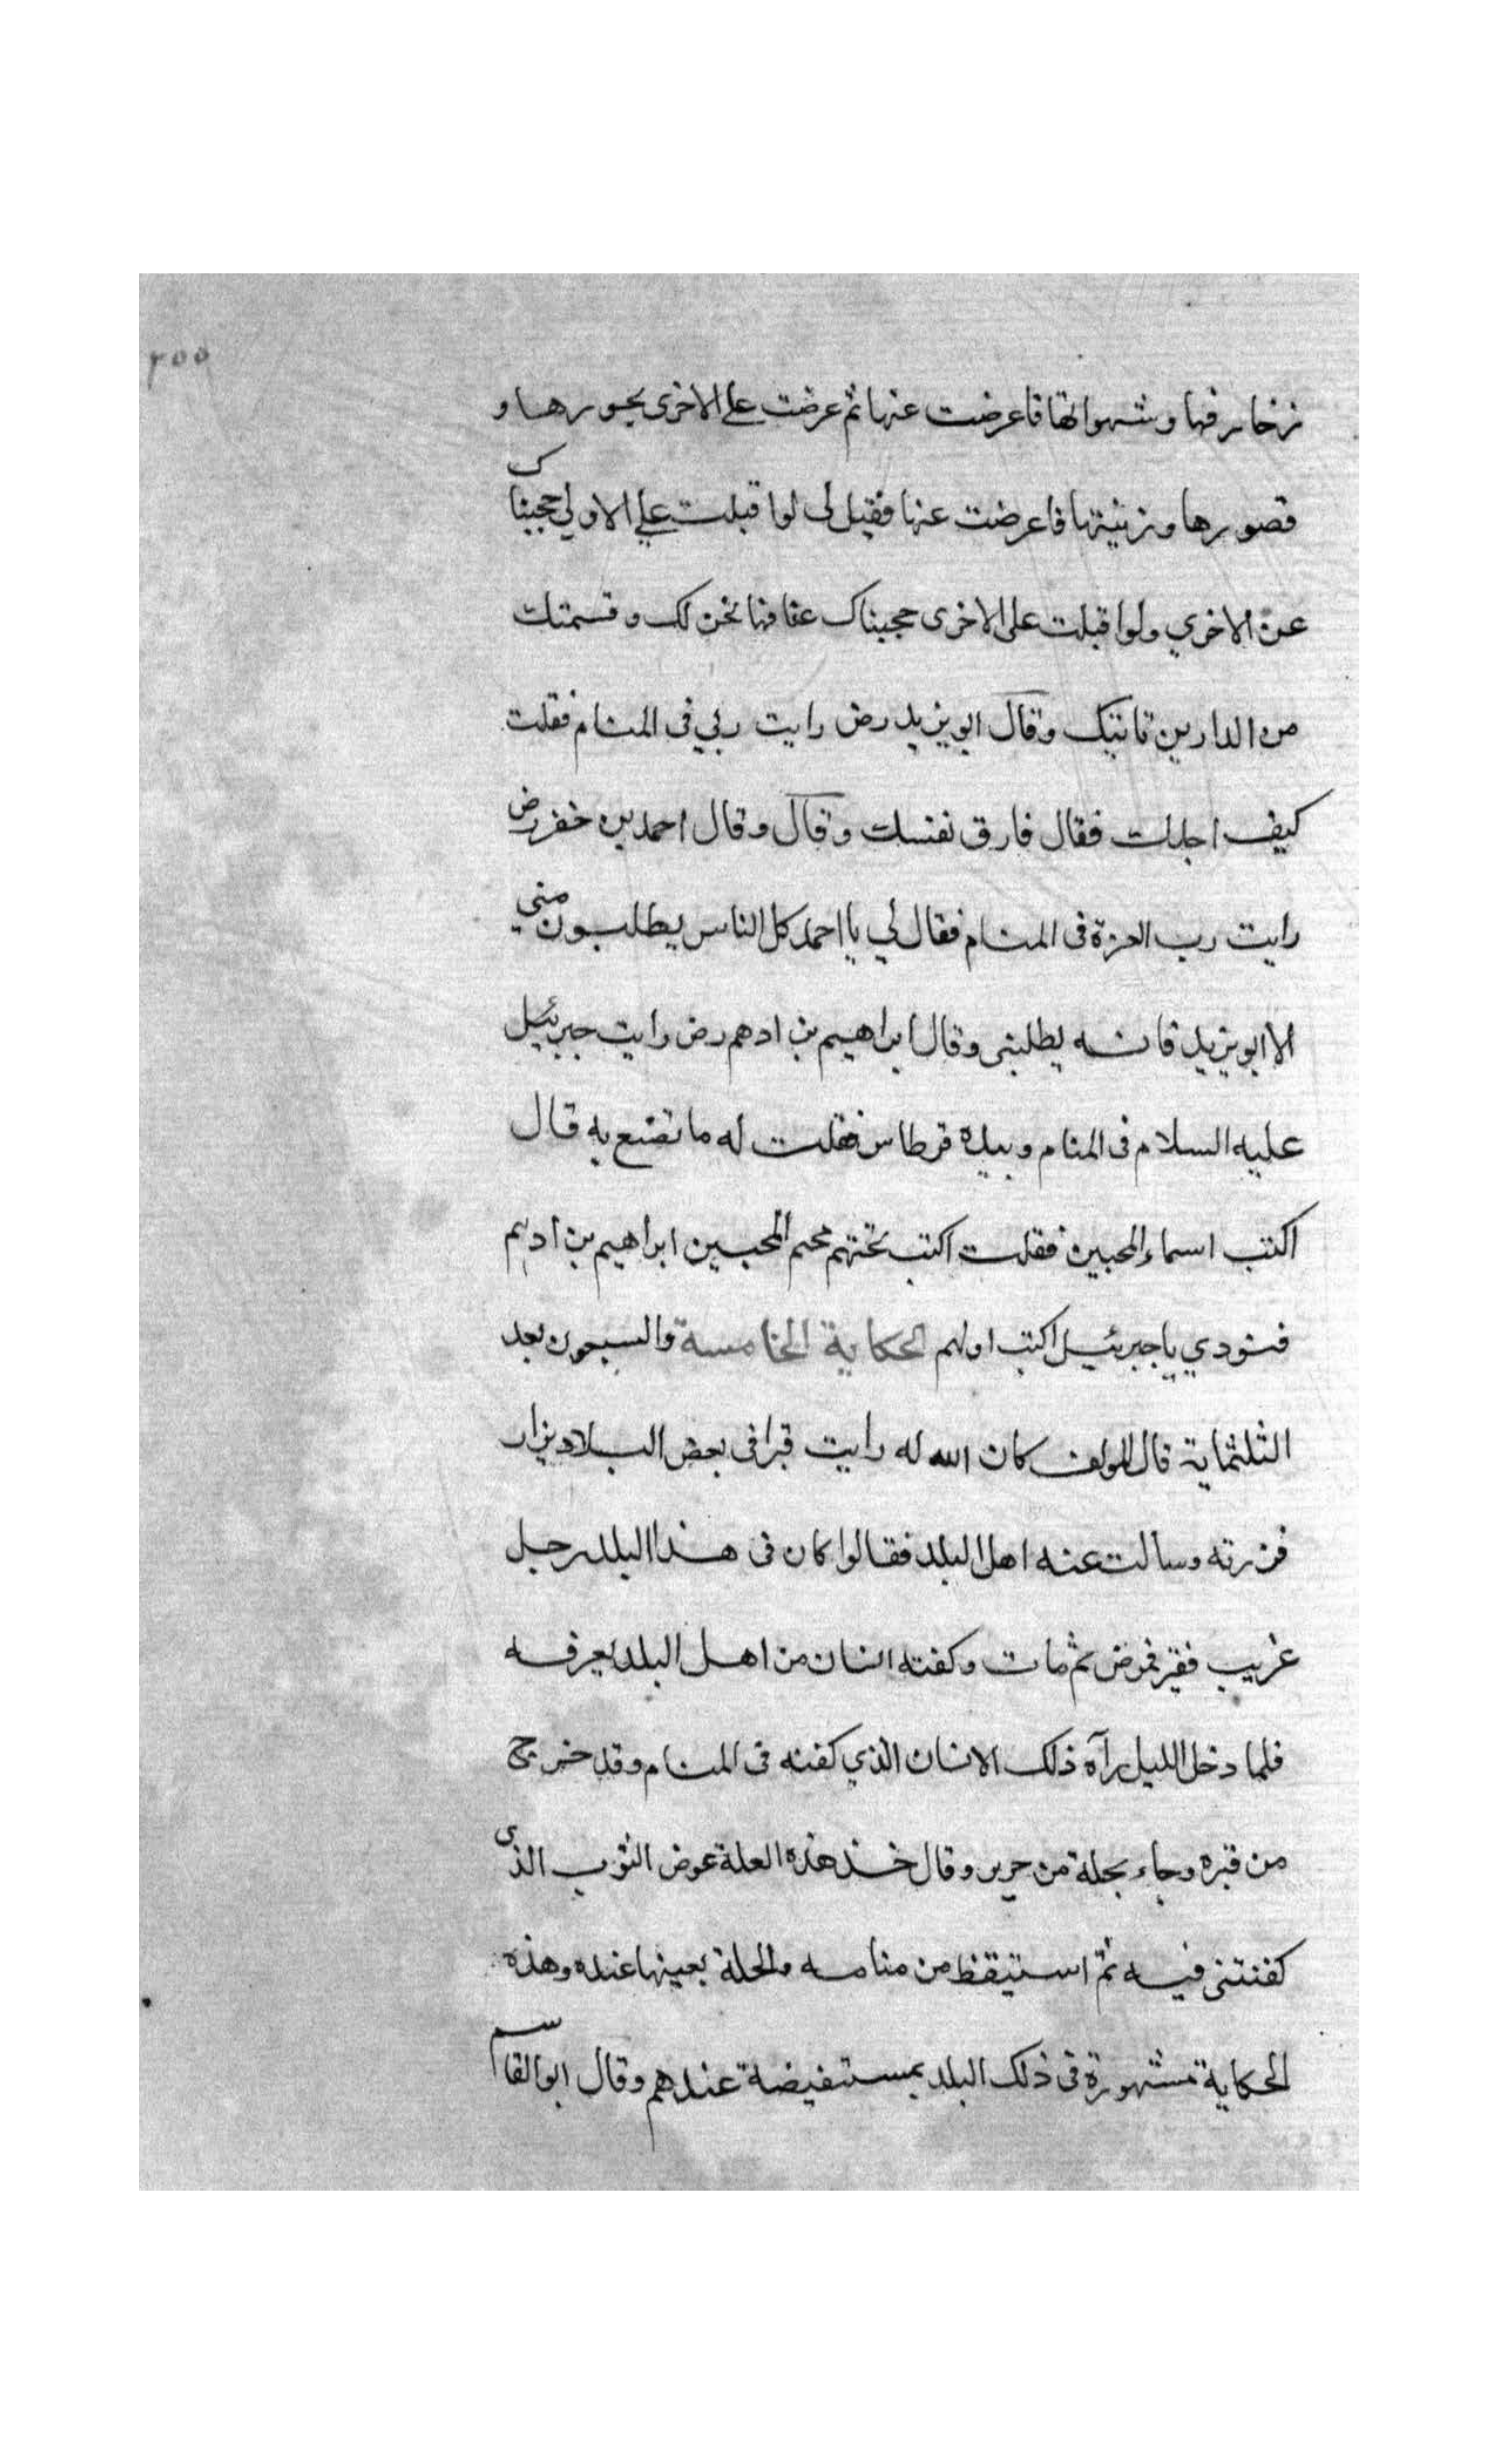 ٢٥٥
زخارفها وشهواتها فاعرضت عنها ثم عرضت علي الاخرى بحورها و
قصورها وزينتها فاعرضت عنها فقيل لى لو اقبلت علي الاولي حجبناك
عن الاخري ولو اقبلت على الاخرى حجبناك عنا فها نحن لك وقسمتك
من الدارين تاتيك وقال ابو يزيد رض رايت ربي فى المنام فقلت
كيف اجدك فقال فارق نفسك وتعال وقال احمد بن خضر رض
رايت رب العزة فى المنام فقال لي يا احمد كل الناس يطلبون مني
الا ابو يزيد فانه يطلبنى وقال ابراهيم بن ادهم رض رايت جبرئيل
عليه السلام فى المنام وبيده قرطاس فقلت له ما تصنع به قال
اكتب اسماء المحبين فقلت اكتب تحتهم محب المحبين ابراهيم بن ادهم
فنودي يا جبرئيل اكتبه اولهم الحكاية الخامسة والسبعون بعد
الثلثماية قال المولف كان الله له رايت قبرا فى بعض البلاد يزار
فزرته وسالت عنه اهل البلد فقالوا كان فى هذا البلد رجل
غريب فقير فمرض ثم مات وكفنه انسان من اهل البلد يعرفه
فلما دخل الليل رآه ذلك الانسان الذي كفنه فى المنام وقد خرج
من قبره وجاء بحلة من حرير وقال خذ هذه الحلة عوض الثوب الذى
كفنتنى فيه ثم استيقظ من منامه والحلة بعينها عنده وهذه
الحكاية مشهورة فى ذلك البلد مستفيضة عندهم وقال ابو القاسم